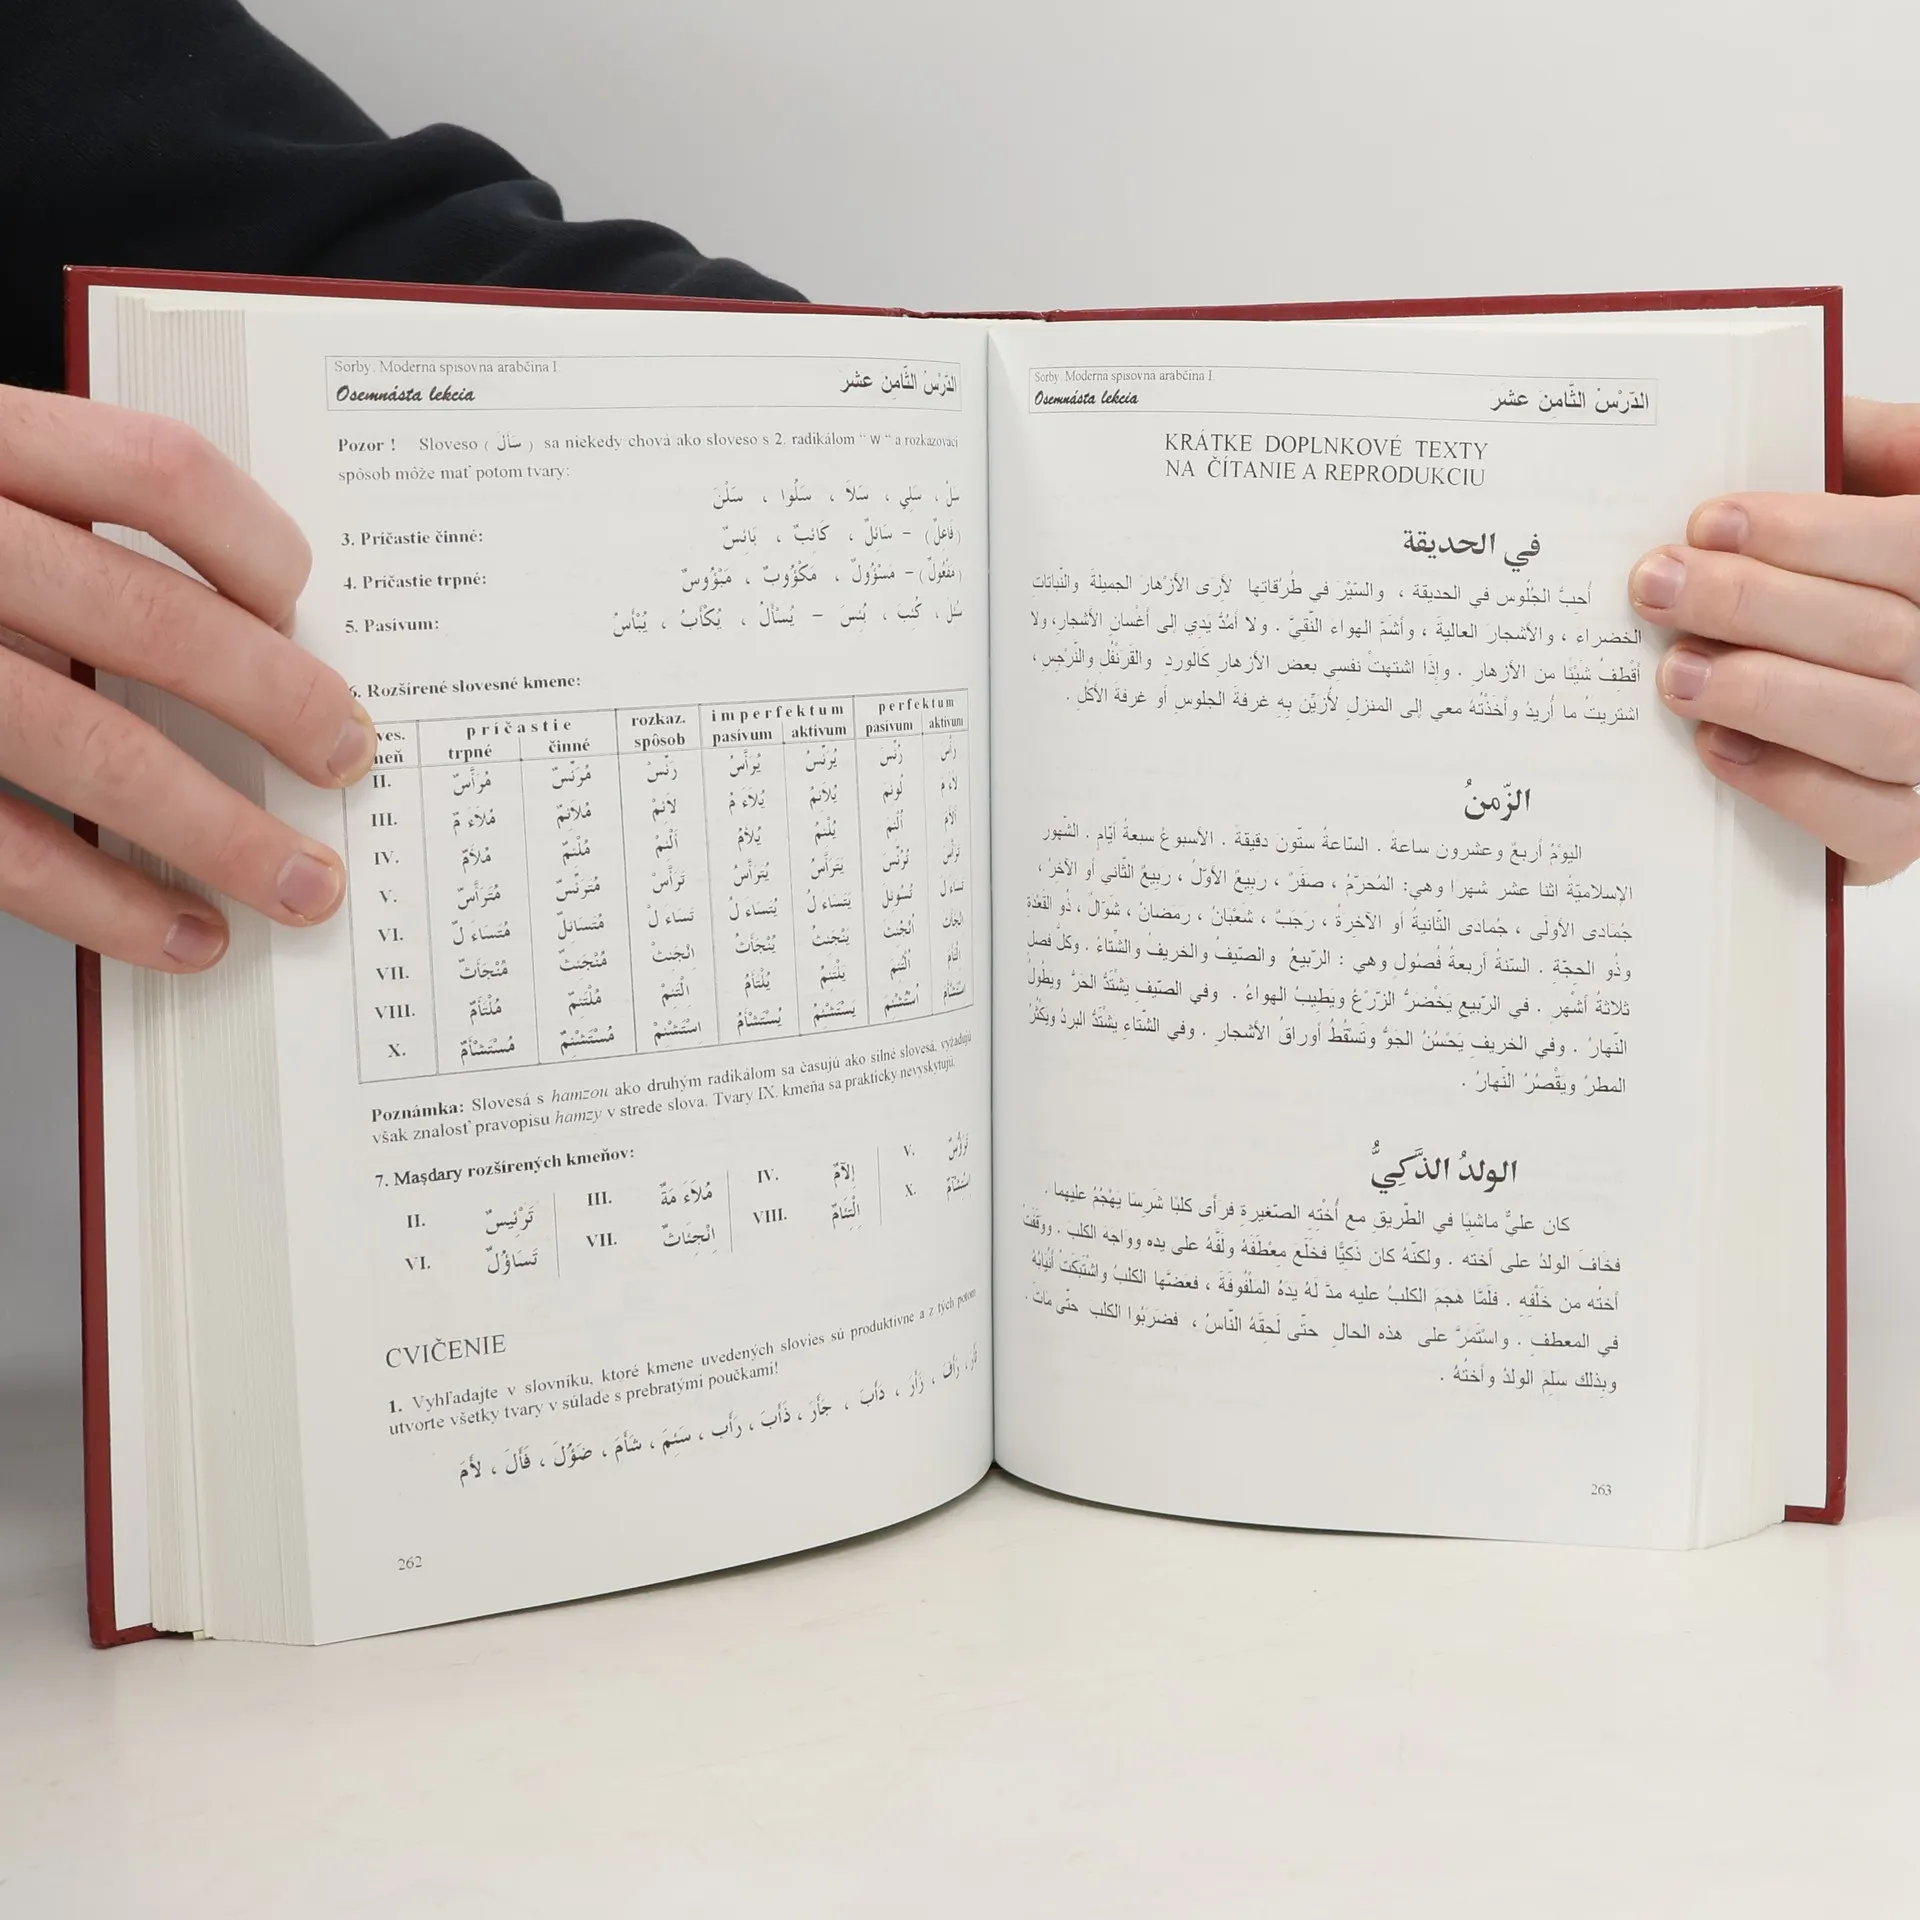 Sorby: Moderná spisovná arabčina I.
Osemnásta lekcia الدَّرْسُ الثَّامِنَ عشَر
Pozor ! Sloveso ( سَأَلَ ) sa niekedy chová ako sloveso s 2. radikálom " w " a rozkazovací
spôsob môže mať potom tvary:
سَلْ ، سَلِي ، سَلاَ ، سَلُوا ، سَلْنَ
3. Príčastie činné: (فَاعِلٌ) – سَائِلٌ ، كَائِبٌ ، بَائِسٌ
4. Príčastie trpné: (مَفْعُولٌ) – مَسْؤُولٌ ، مَكْؤُوبٌ ، مَبْؤُوسٌ
5. Pasívum: سُئِلَ ، كُئِبَ ، بُئِسَ – يُسْأَلُ ، يُكْأَبُ ، يُبْأَسُ
6. Rozšírené slovesné kmene:
ves. príčastie rozkaz. imperfektum perfektum
meň trpné činné spôsob pasívum aktívum pasívum aktívum
II. مُرَأَّسٌ مُرَئِّسٌ رَئِّسْ يُرَأَّسُ يُرَئِّسُ رُئِّسَ رأَّس
III. مُلاَءَ مٌ مُلاَئِمٌ لاَئِمْ يُلاَءَ مُ يُلاَئِمُ لُوئِمَ لاءَ مَ
IV. مُلأَمٌ مُلْئِمٌ أَلْئِمْ يُلأَمُ يُلْئِمُ أُلْئِمَ أَلأَمَ
V. مُتَرَأَّسٌ مُتَرَئِّسٌ تَرَأَّسْ يُتَرَأَّسُ يَتَرَأَّسُ تُرُئِّسَ تَرأَّسَ
VI. مُتَسَاءَ لٌ مُتَسَائِلٌ تَسَاءَ لْ يُتَسَاءَ لُ يَتَسَاءَ لُ تُسُوئِلَ تَسَاءَ لَ
VII. مُنْجَأَثٌ مُنْجَئِثٌ اِنْجَئِثْ يُنْجَأَثُ يَنْجَئِثُ اُنْجُئِثَ اِنْجَأَثَ
VIII. مُلْتَأَمٌ مُلْتَئِمٌ اِلْتَئِمْ يُلْتَأَمُ يَلْتَئِمُ اُلْتُئِمَ اِلْتَأَمَ
X. مُسْتَشْأَمٌ مُسْتَشْئِمٌ اِسْتَشْئِمْ يُسْتَشْأَمُ يَسْتَشْئِمُ اُسْتُشْئِمَ اِسْتَشْأَمَ
Poznámka: Slovesá s hamzou ako druhým radikálom sa časujú ako silné slovesá, vyžadujú
však znalosť pravopisu hamzy v strede slova. Tvary IX. kmeňa sa prakticky nevyskytujú.
7. Maṣdary rozšírených kmeňov:
II. تَرْئِيسٌ III. مُلاَءَ مَةٌ IV. إِلآمٌ V. تَرَؤُّسٌ
VI. تَسَاؤُلٌ VII. اِنْجِئَاثٌ VIII. اِلْتِئَامٌ X. اِسْتِشْآمٌ
CVIČENIE
1. Vyhľadajte v slovníku, ktoré kmene uvedených slovies sú produktívne a z tých potom
utvorte všetky tvary v súlade s prebratými poučkami!
رَأَفَ ، زَأَرَ ، دَأَبَ ، جَأَرَ ، ذَأَبَ ، رَأَبَ ، سَئِمَ ، شَأَمَ ، ضَؤُلَ ، فَأَلَ ، لأَمَ
262
Sorby: Moderná spisovná arabčina I.
Osemnásta lekcia الدَّرْسُ الثَّامِنَ عشَر
KRÁTKE DOPLNKOVÉ TEXTY
NA ČÍTANIE A REPRODUKCIU
في الحديقة
أُحِبُّ الجُلُوس في الحديقة ، والسَّيْرَ في طُرُقاتِها لأِرَى الأزْهارَ الجميلةَ والنَّباتاتِ
الخضراءَ ، والأشجارَ العاليةَ ، وأشمُّ الهواءَ النَّقِيَّ . ولا أمُدُّ يَدِي إلى أغْسانِ الأشجارِ، ولا
أقْطِفُ شَيْئًا من الأزهارِ . وإذَا اشتهتْ نفسِي بعضَ الأزهارِ كَالوردِ والقَرَنْفُلِ والنَّرْجِسِ ،
اشتريتُ ما أُريدُ وأخَذْتُهُ معي إلى المنزلِ لأُزَيِّنَ بِهِ غرفةَ الجلوسِ أو غرفةَ الأكْل .
الزّمنُ
اليوْمُ أربعٌ وعشرون ساعةً . السّاعةُ ستّون دقيقةً . الأسبوعُ سبعةُ أيّامٍ . الشّهور
الإسلاميّةُ اثنا عشر شهرًا وهي: المُحَرَّمُ ، صفَرٌ ، ربيعٌ الأوّلُ ، ربيعٌ الثّاني أو الآخِرُ ،
جُمَادى الأولَى ، جُمادى الثّانيةُ أو الآخِرةُ ، رَجَبٌ ، شَعْبَانُ ، رمضانُ ، شوّالٌ ، ذُو القَعْدةِ
وذُو الحجّةِ . السّنةُ أربعةُ فُصُولٍ وهي : الرّبيعُ والصّيفُ والخريفُ والشّتاءُ . وكلُّ فصل
ثلاثةُ أشْهرٍ . في الرّبيعِ يَخْضَرُّ الزّرْعُ ويَطِيبُ الهواءُ . وفي الصّيفِ يَشْتَدُّ الحَرُّ ويطُولُ
النّهارُ . وفي الخريفِ يَحْسُنُ الجَوُّ وتَسْقُطُ أوراقُ الأشجارِ . وفي الشّتاءِ يشْتَدُّ البردُ ويَكْثُرُ
المطرُ ويَقْصُرُ النّهارُ .
الولدُ الذَّكِيُّ
كان عليٌّ ماشيًا في الطّريقِ مع أُخْتِهِ الصّغيرةِ فرَأى كلبًا شَرِسًا يَهْجُمُ عليهما .
فخَافَ الولدُ على أخته . ولكنّهُ كان ذَكِيًّا فخَلَعَ مِعْطَفَهُ ولَفَّهُ على يده وواجَهَ الكلبَ . ووقَفَتْ
أختُه من خَلْفِهِ . فلَمَّا هَجَمَ الكلبُ عليه مدّ لَهُ يدَهُ المَلْفُوفَةَ ، فعَضَّها الكلبُ واشْتَبَكَتْ أنْيَابُهُ
في المعطفِ . واسْتَمَرَّ على هذه الحالِ حتّى لَحِقَهُ النّاسُ ، فضَرَبُوا الكلبَ حتّى مَاتَ .
وبِذلك سَلِمَ الولدُ وأختُهُ .
263